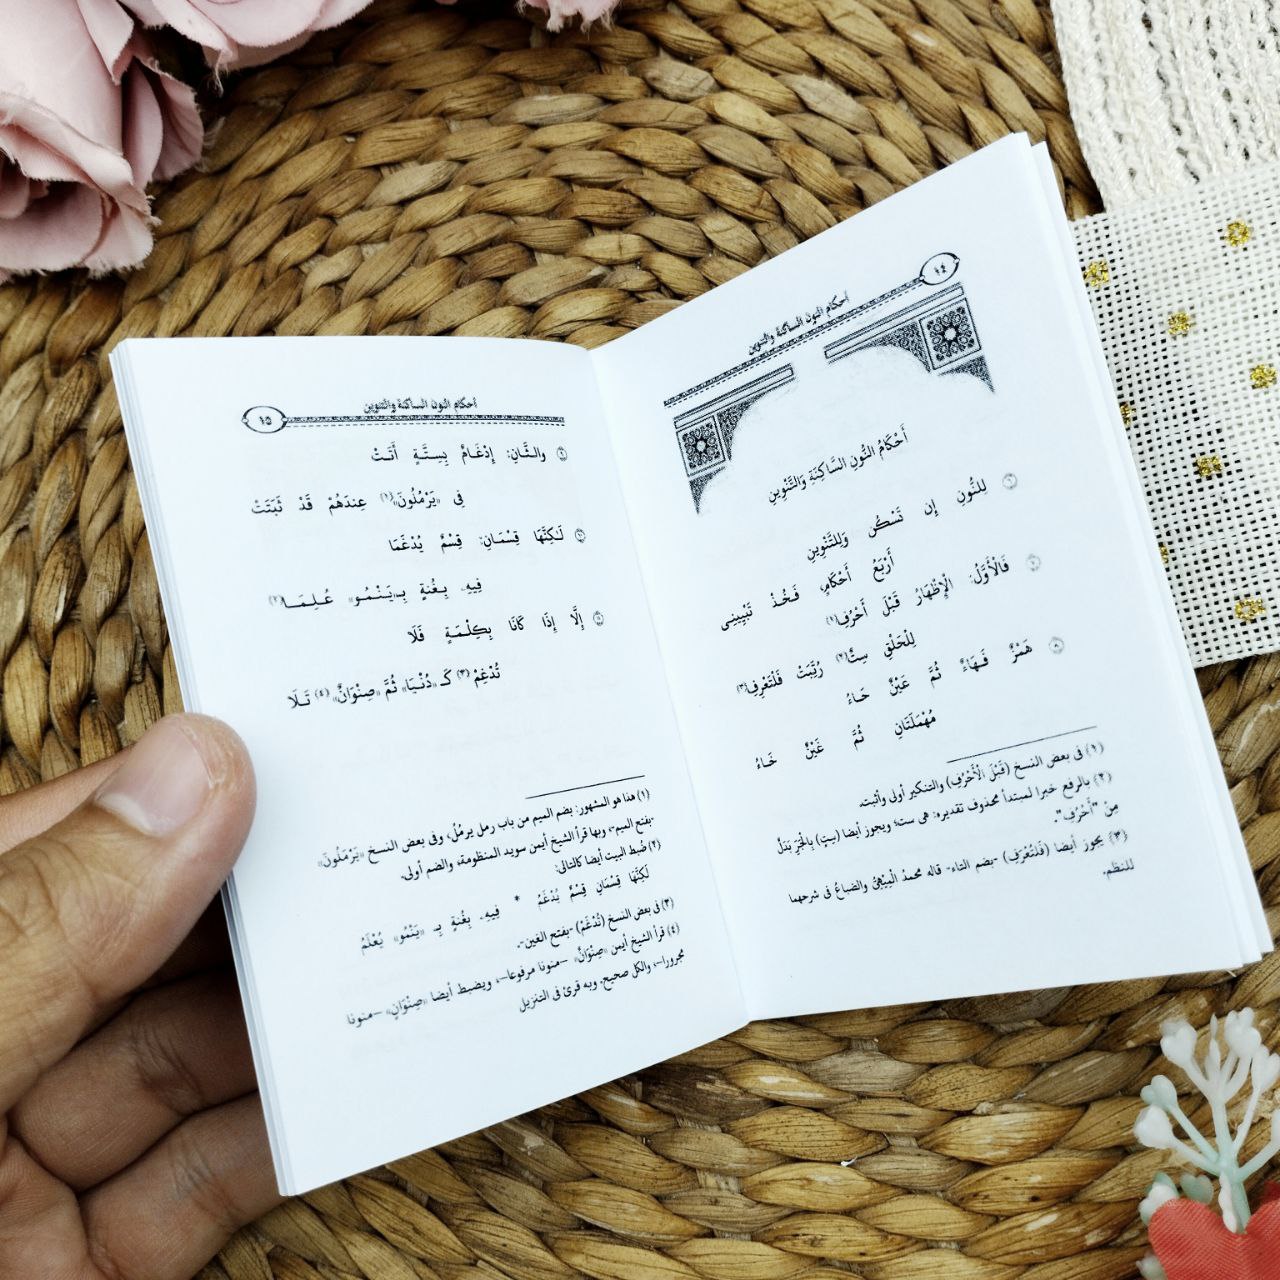 ١٤
أحكام النون الساكنة والتنوين
أَحْكَامُ النُّونِ السَّاكِنَةِ وَالتَّنْوِينِ
٦ لِلنُّونِ إِن تَسْكُن وَلِلتَّنْوِينِ
أَرْبَعُ أَحْكَامٍ، فَخُذْ تَبْيِينِى
٧ فَالْأَوَّلُ: الْإِظْهَارُ قَبْلَ أَحْرُفِ(١)
لِلْحَلْقِ سِتٌّ(٢) رُتِّبَتْ فَلْتَعْرِفِ(٣)
٨ هَمْزٌ فَهَاءٌ ثُمَّ عَيْنٌ حَاءُ
مُهْمَلَتَانِ ثُمَّ غَيْنٌ خَاءُ
(١) فى بعض النسخ (قَبْلَ الْأَحْرُفِ) والتنكير أولى وأثبت.
(٢) بالرفع خبرا لمبتدأ محذوف تقديره: هى ست؛ ويجوز أيضا (سِتٍ) بِالْجَرِّ بَدَلٌ
مِنْ "أَحْرُفِ".
(٣) يجوز أيضا (فَلْتُعْرَفِ) -بضم التاء- قاله محمدٌ الْمِيْهِىُّ والضباعُ فى شرحهما
للنظم.
أحكام النون الساكنة والتنوين
١٥
٩ والثَّانِ: إِدْغَامٌ بِسِتَّةٍ أَتَتْ
فِى «يَرْمُلُونَ»(١) عِندَهُمْ قَدْ ثَبَتَتْ
١٠ لَكِنَّهَا قِسْمَانِ: قِسْمٌ يُدْغَمَا
فِيهِ بِغُنَّةٍ بِـ«يَنْمُو» عُلِمَا(٢)
١١ إِلَّا إِذَا كَانَا بِكِلْمَةٍ فَلَا
تُدْغِمْ(٣) كَـ«دُنْيَا» ثُمَّ «صِنْوَانٌ»(٤) تَلَا
(١) هذا هو المشهور: بضم الميم من باب رمل يرمُلُ، وفى بعض النسخ «يَرْمَلُونَ»
-بفتح الميم-، وبها قرأ الشيخ أيمن سويد المنظومة، والضم أولى.
(٢) ضُبط البيت أيضا كالتالى:
لَكِنَّهَا قِسْمَانِ قِسْمٌ يُدْغَمُ * فِيهِ بِغُنَّةٍ بِـ «يَنْمُو» يُعْلَمُ
(٣) فى بعض النسخ (تُدْغَمْ) -بفتح الغين-.
(٤) قرأ الشيخ أيمن «صِنْوَانٌ» -منونا مرفوعا-، ويضبط أيضا «صِنْوَانٍ» -منونا
مجرورا-، والكل صحيح. وبه قرئ فى التنزيل